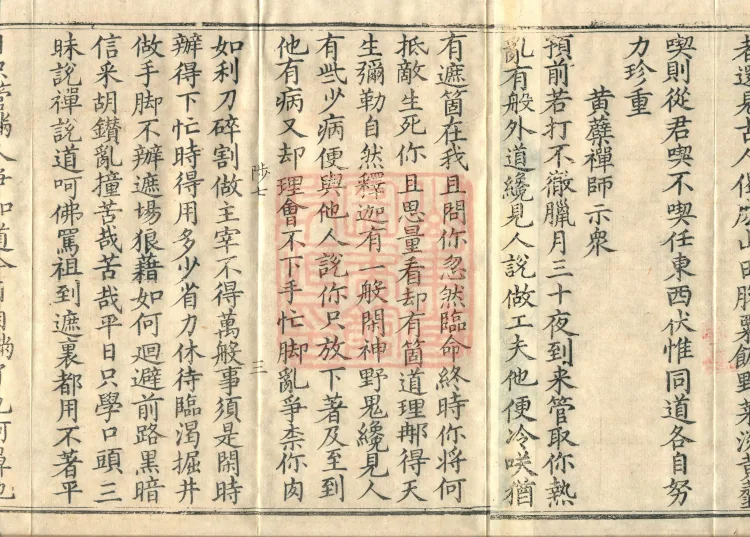 山田脫粟飯野菜淡黄虀
喫則從君喫不喫任東西伏惟同道各自努
力珍重
黄蘗禪師示衆
預前若打不徹臘月三十夜到来管取你熱
亂有般外道纔見人說做工夫他便冷咲猶
有遮箇在我且問你忽然臨命終時你將何
抵敵生死你且思量看却有箇道理那得天
生彌勒自然釋迦有一般閑神野鬼纔見人
有些少病便與他人說你只放下著及至到
他有病又却理會不下手忙脚亂爭柰你肉
陟七
三
如利刀碎割做主宰不得萬般事須是閑時
辦得下忙時得用多少省力休待臨渴掘井
做手脚不辦遮場狼藉如何迴避前路黑暗
信采胡鑽亂撞苦哉苦哉平日只學口頭三
昧說禪說道呵佛罵祖到遮裏都用不著平
日只管瞞人爭知道今日自瞞了也阿鼻地